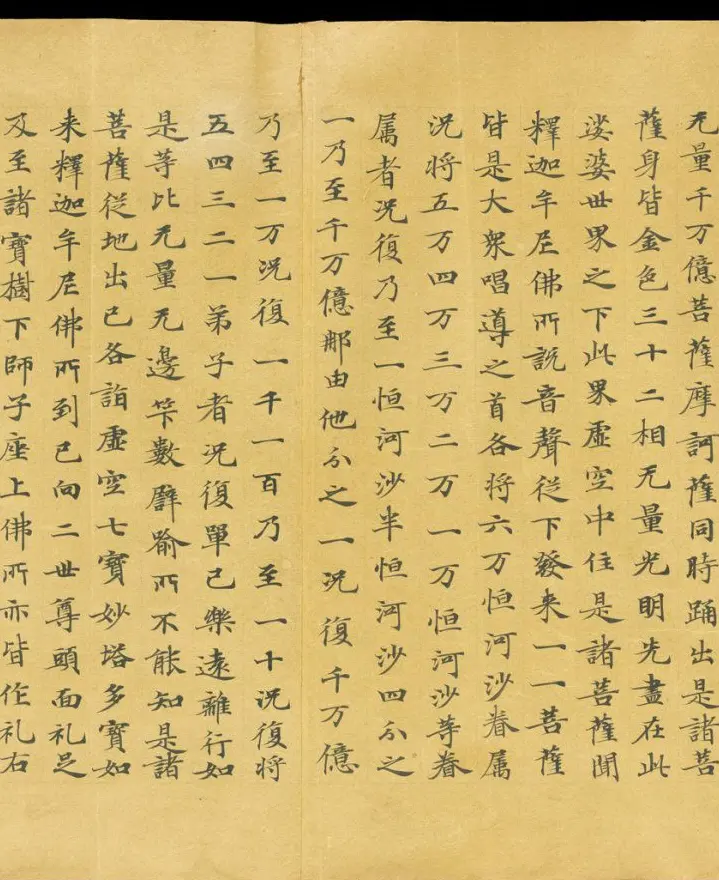 无量千万億菩薩摩訶薩同時踊出是諸菩
薩身皆金色三十二相无量光明先盡在此
娑婆世界之下此界虛空中住是諸菩薩聞
釋迦牟尼佛所說音聲從下發来一一菩薩
皆是大衆唱導之首各將六万恒河沙眷属
况將五万四万三万二万一万恒河沙等眷
属者况復乃至一恒河沙半恒河沙四分之
一乃至千万億那由他分之一况復千万億
乃至一万况復一千一百乃至一十况復將
五四三二一弟子者况復單己樂遠離行如
是等比无量无邊筭數譬喻所不能知是諸
菩薩從地出已各詣虛空七寶妙塔多寶如
来釋迦牟尼佛所到已向二世尊頭面礼足
及至諸寶樹下師子座上佛所亦皆作礼右